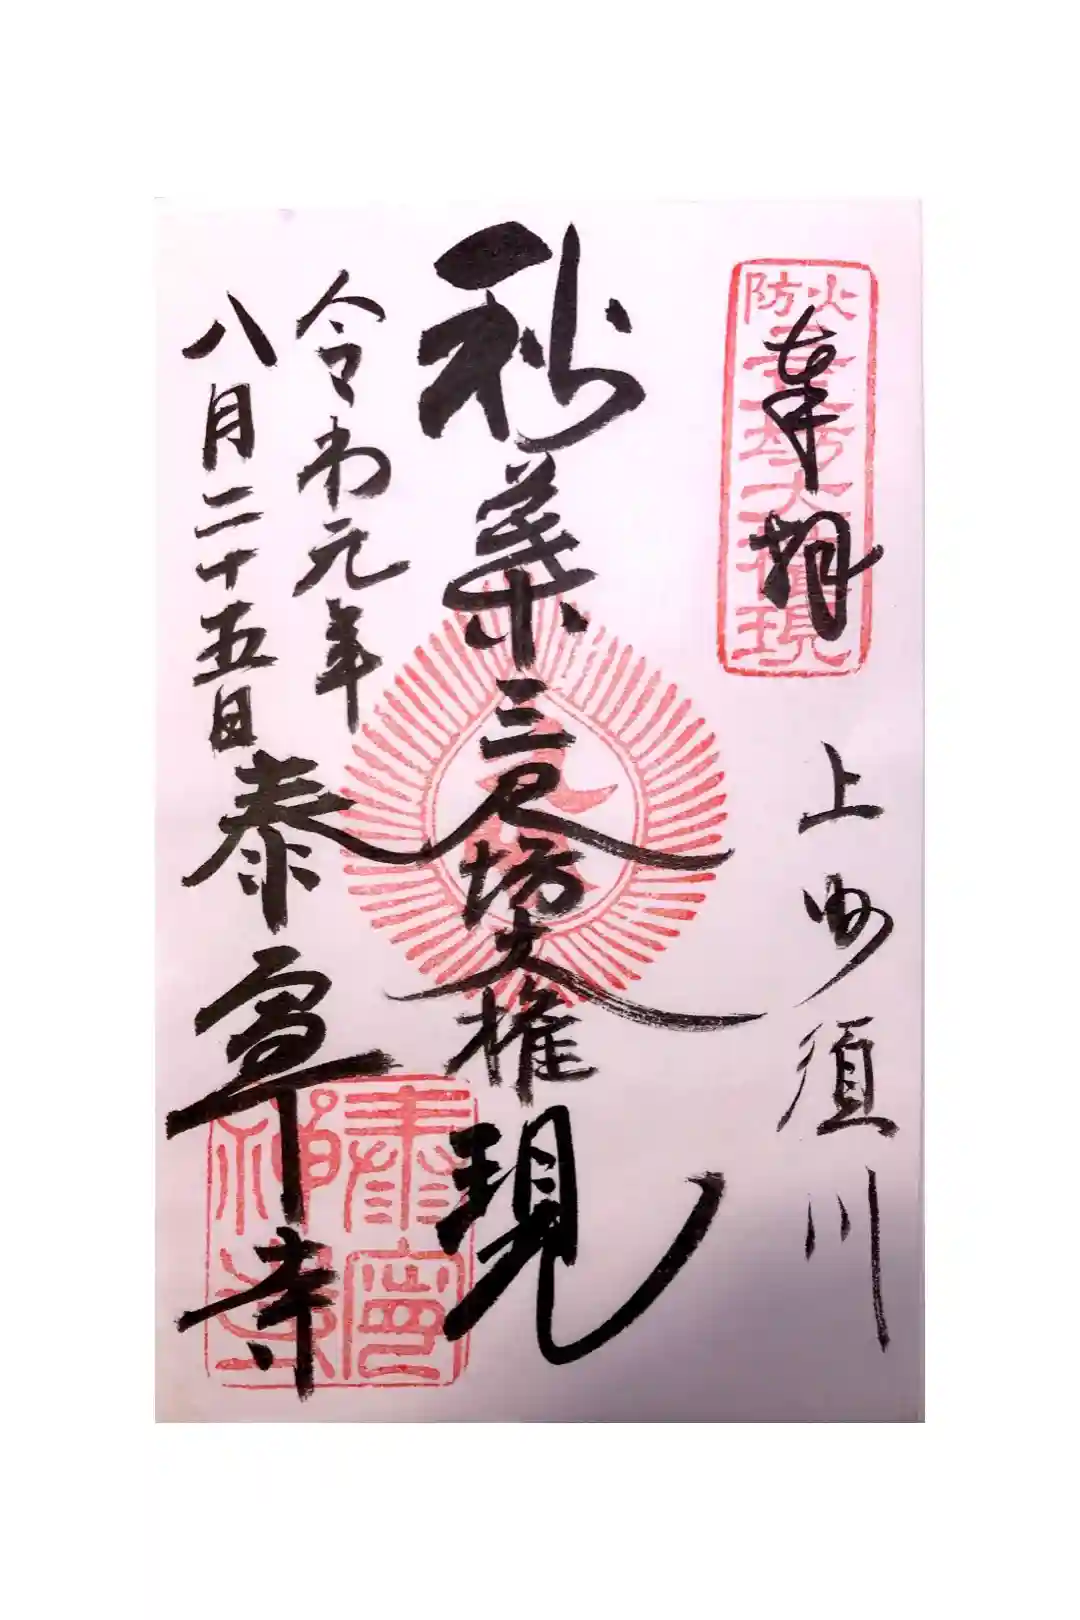 奉拝
防火
三尺坊大権現
上州須川
秋葉三尺坊大権現
令和元年
八月二十五日
泰寧寺